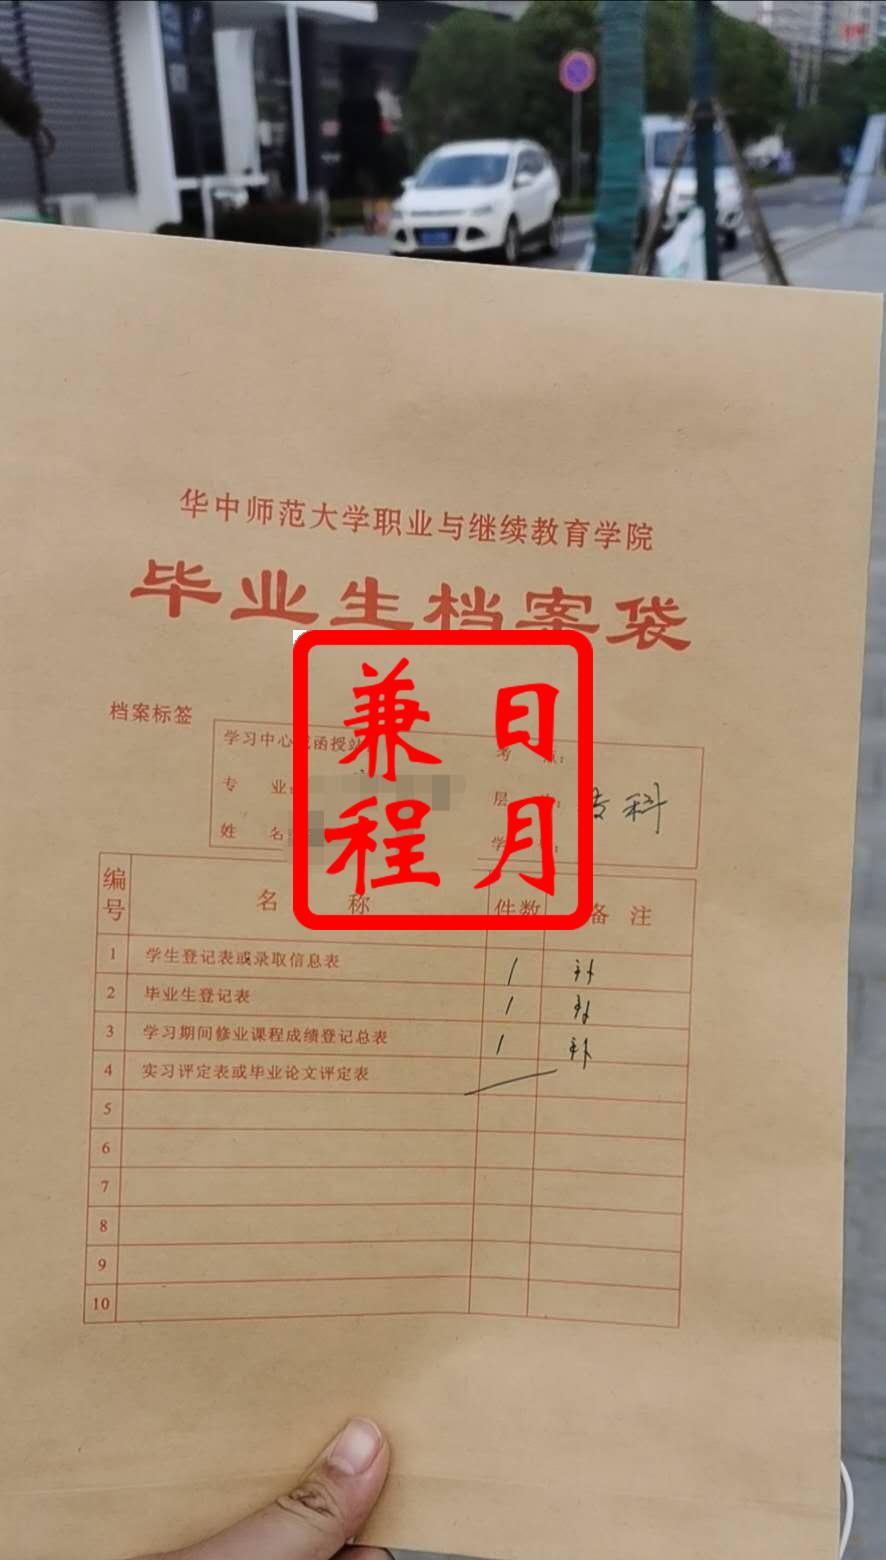 华中师范大学职业与继续教育学院
毕业生档案袋
档案标签
学习中心或函授站
考 点:
专 业:
层 次: 专科
姓 名:
学 号:
日月兼程
编号 名 称 件数 备 注
1 学生登记表或录取信息表 1 补
2 毕业生登记表 1 补
3 学习期间修业课程成绩登记总表 1 补
4 实习评定表或毕业论文评定表
5
6
7
8
9
10